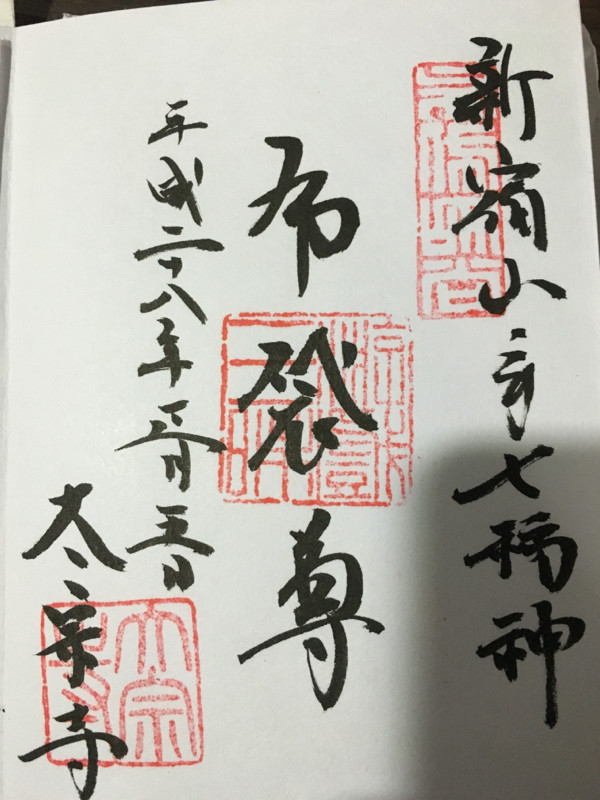 新宿山ノ手七福神
布袋尊
平成二十八年正月五日
太宗寺
太宗寺